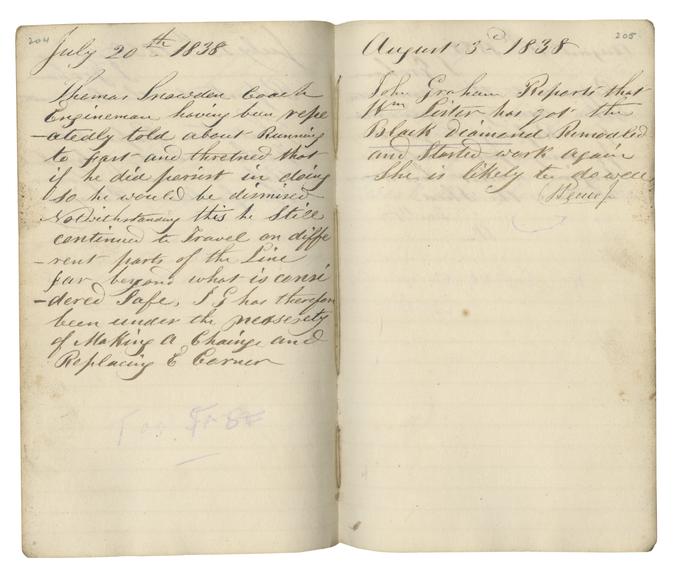 204
July 20th 1838
Thomas Snowden Coach
Engineman having been repe
-atedly told about Running
to fast and thretned that
if he did persist in doing
so he would be dismised
Notwithstanding this he Still
continued to Travel on diffe
-rent parts of the Line
far beyond what is consi
-dered Safe, J G has therefore
been under the nessesety
of Making a Change and
Replacing E Corner
Too Fast
205
August 3d 1838
John Graham Reports that
Wm Lister has got the
Black Diamond Remodled
and Started work again
She is likely to do well